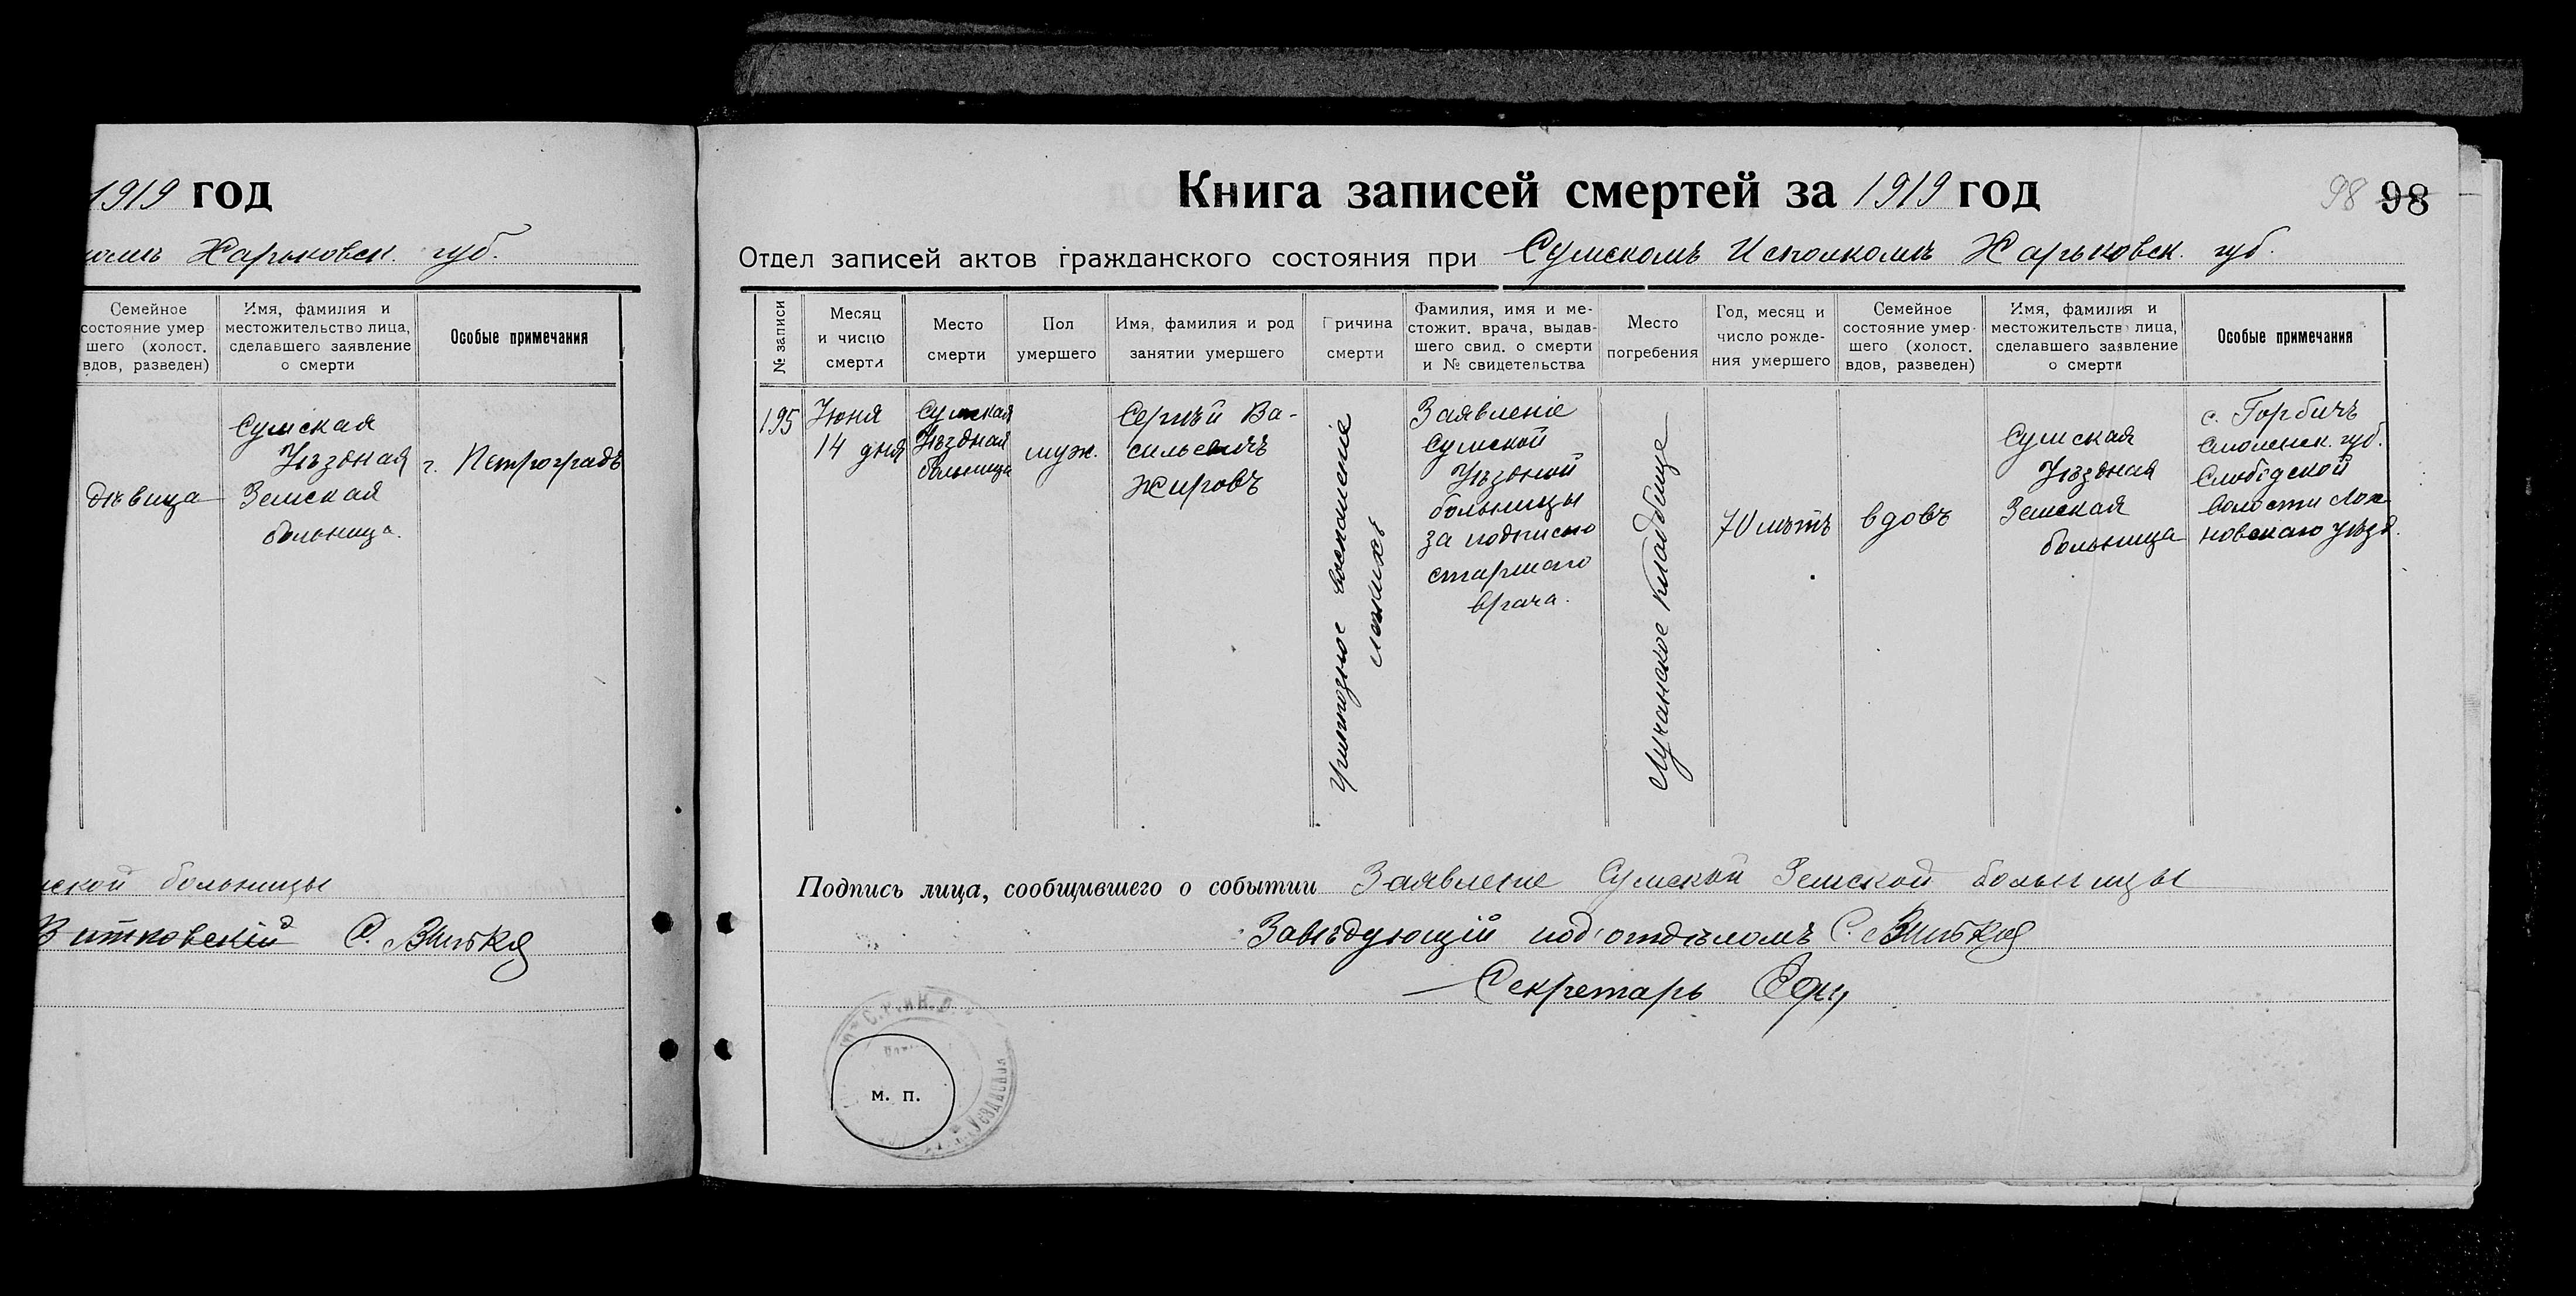 1919 год
Харьковск. губ.
Семейное
состояние умер
шего (холост.
вдов, разведен)
Имя, фамилия и
местожительство лица,
сделавшего заявление
о смерти
Особые примечания
дѣвица
Сумская
Уѣздная
Земская
больница.
г. Петроградъ
ской больницы
Витковскій С. Витк
98 98
Книга записей смертей за 1919 год
Отдел записей актов гражданского состояния при Сумскомъ Исполкомѣ Харьковск. губ.
№ записи
Месяц
и число
смерти
Место
смерти
Пол
умершего
Имя, фамилия и род
занятии умершего
Причина
смерти
Фамилия, имя и ме-
стожит. врача, выдав-
шего свид. о смерти
и № свидетельства
Место
погребения
Год, месяц и
число рожде-
ния умершего
Семейное
состояние умер-
шего (холост.
вдов, разведен)
Имя, фамилия и
местожительство лица,
сделавшего заявление
о смерти
Особые примечания
195
Июня
14 дня
Сумская
Уѣздная
больница
муж.
Сергѣй Ва-
сильевичъ
Жировъ
Крипозное воспаленіе
легкихъ
Заявленіе
Сумской
Уѣздной
больницы
за подписью
старшаго
врача.
Лучанское кладбище
70 лѣтъ
вдовъ
Сумская
Уѣздная
Земская
больница
с. Горбичъ
Смоленск. губ.
Слободской
волости
новскаго уѣзд.
Подпись лица, сообщившего о событии Заявленіе Сумской Земской больницы
Завѣдующій подотдѣломъ С. Витк
Секретарь
м. п.